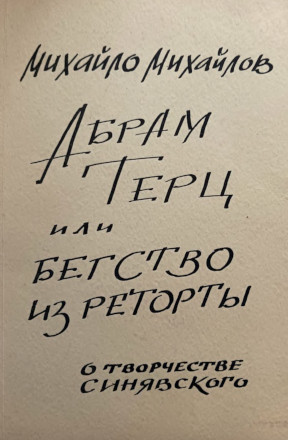 Михайло Михайлов
Абрам
Терц
или
бегство
из реторты
о творчестве
Синявского